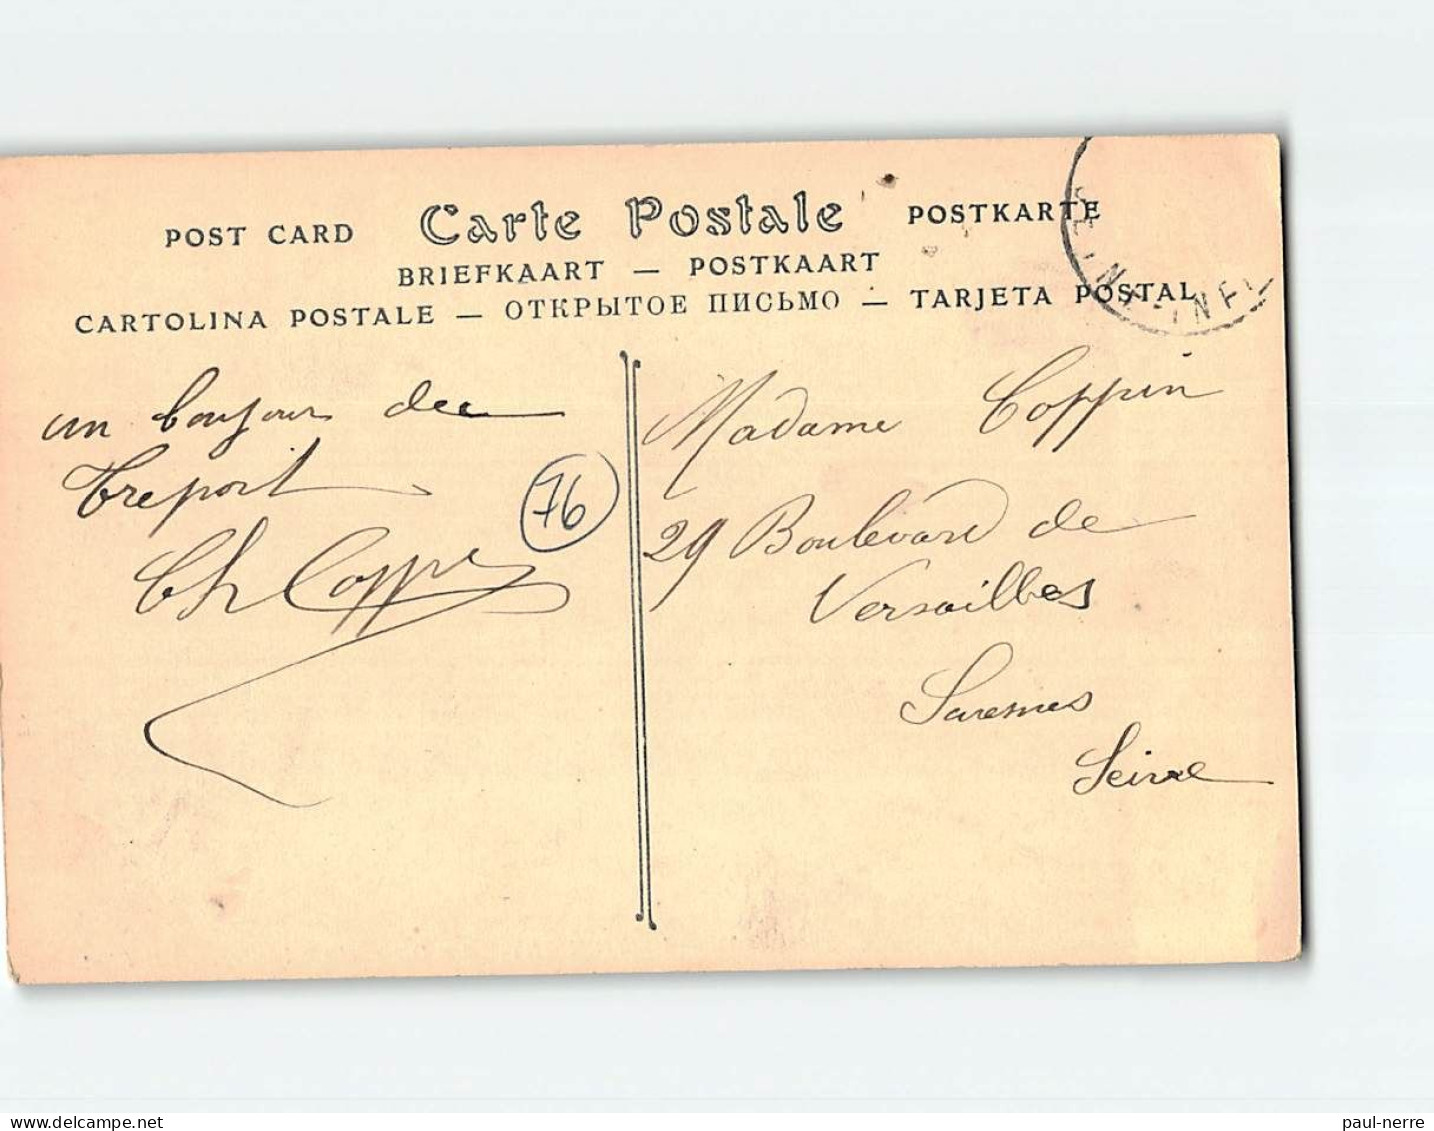 POST CARD Carte Postale POSTKARTE
BRIEFKAART — POSTKAART
CARTOLINA POSTALE — ОТКРЫТОЕ ПИСЬМО — TARJETA POSTAL
un bonjour du
Treport
Ch Coppin
76
Madame Coppin
29 Boulevard de
Versailles
Suresnes
Seine
INF
paul-nerre